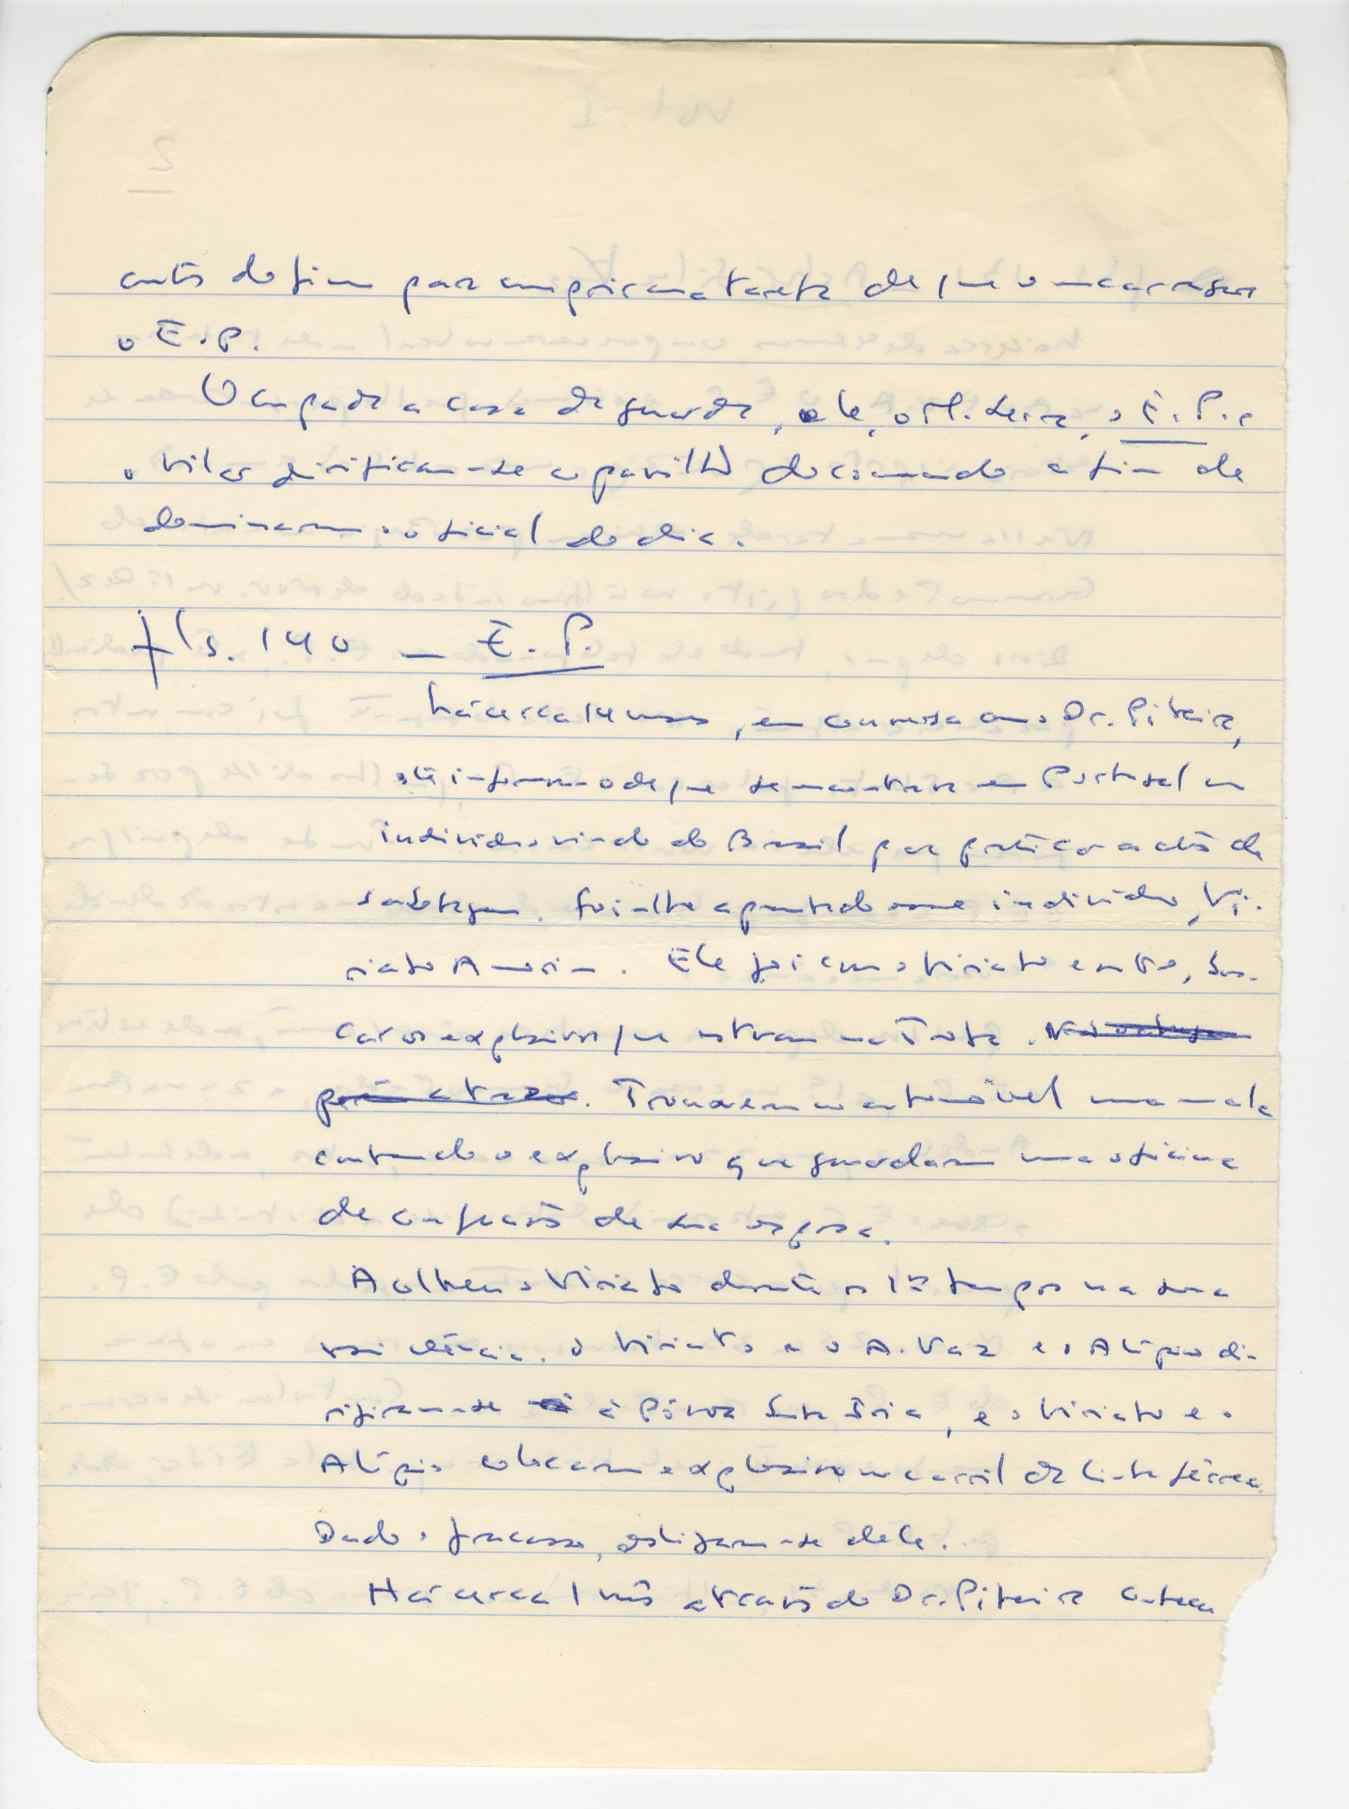 do fim para cumprir a tarefa de que o encarregara
o E.P.
Ocupada a casa da guarda, ele, o M. Serra, o E.P. e
o Vilar dirigiram-se ao pavilhão do comando a fim de
dominarem o oficial do dia.
fls. 140 — E. P.
há cerca 14 meses, em conversa com o Dr. Piteira,
este informou-o de que se encontrava em Portugal um
indivíduo vindo do Brasil para praticar actos de
sabotagem. Foi-lhe apontado esse indivíduo, Vi-
riato Amorim. Ele foi com o Viriato e outro, bus-
car os explosivos que estavam na Trafa.
Trouxeram no automóvel uma mala
contendo o explosivo que guardaram na oficina
de confecções de sua esposa.
Acolheu o Viriato durante os 1ºs tempos na sua
residência. O Viriato e o A. Vaz e o Alípio di-
rigiram-se à Póvoa Santa Iria, e o Viriato e o
Alípio colocaram o explosivo no carril da linha férrea.
Dado o fracasso, desligaram-se dele.
Há cerca 1 mês através do Dr. Piteira